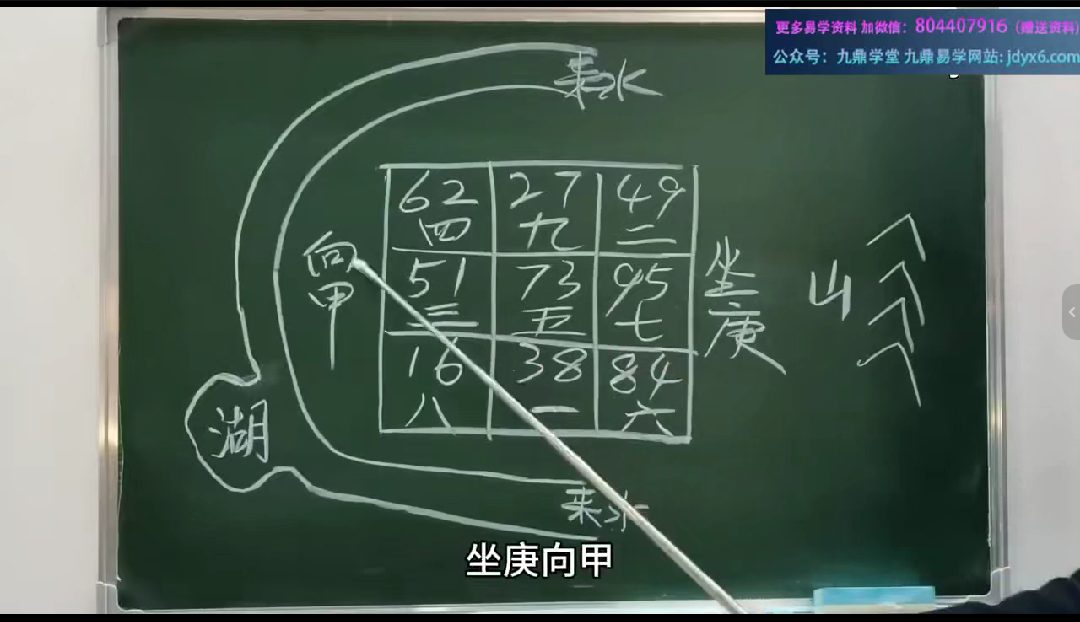 更多易学资料 加微信：804407916（赠送资料）
公众号：九鼎学堂 九鼎易学网站：jdyx6.com
来水
62 27 49
四 九 二
向甲
51 73 95
三 五 七
坐庚
山
16 38 84
八 一 六
湖
来水
坐庚向甲